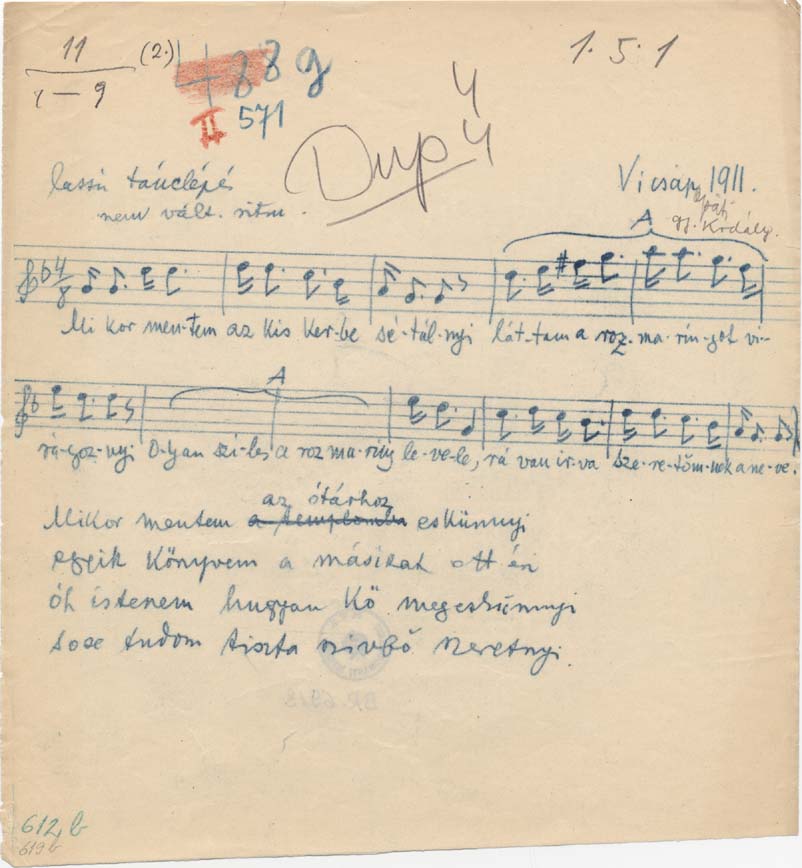 11 (2.) 88 g 1. 5. 1
1 – 9
II 571
4
Dup 4
lassú tánclépés Vicsáp 1911.
nem vált. ritm. apáti
gy. Kodály.
A
4
8
Mi kor men-tem az kis ker-be sé-tál-nyi lát-tam a roz-ma-rin-got vi-
A
rá-goz-nyi O-lyan szé-les a roz ma-ring le-ve-le, rá van ir-va sze-re-tőm-nek a ne-ve.
az ótárhoz
Mikor mentem a templomba eskünnyi
egyik könyvem a másikat ott éri
óh istenem hugyan kő megeskünnyi
sose tudom tiszta szivbő szeretnyi.
612, b
619 b